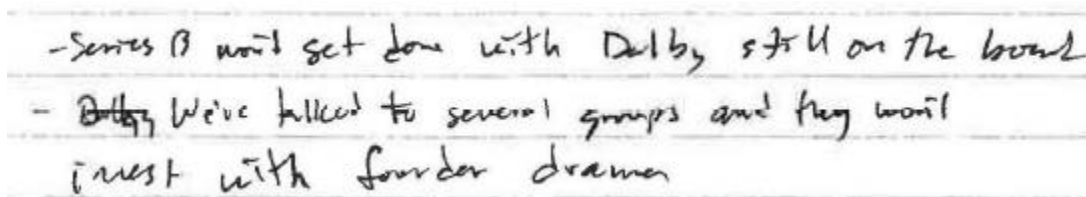 -Series B won't get done with Dalby still on the board
- Dalby We've talked to several groups and they won't
invest with founder drama